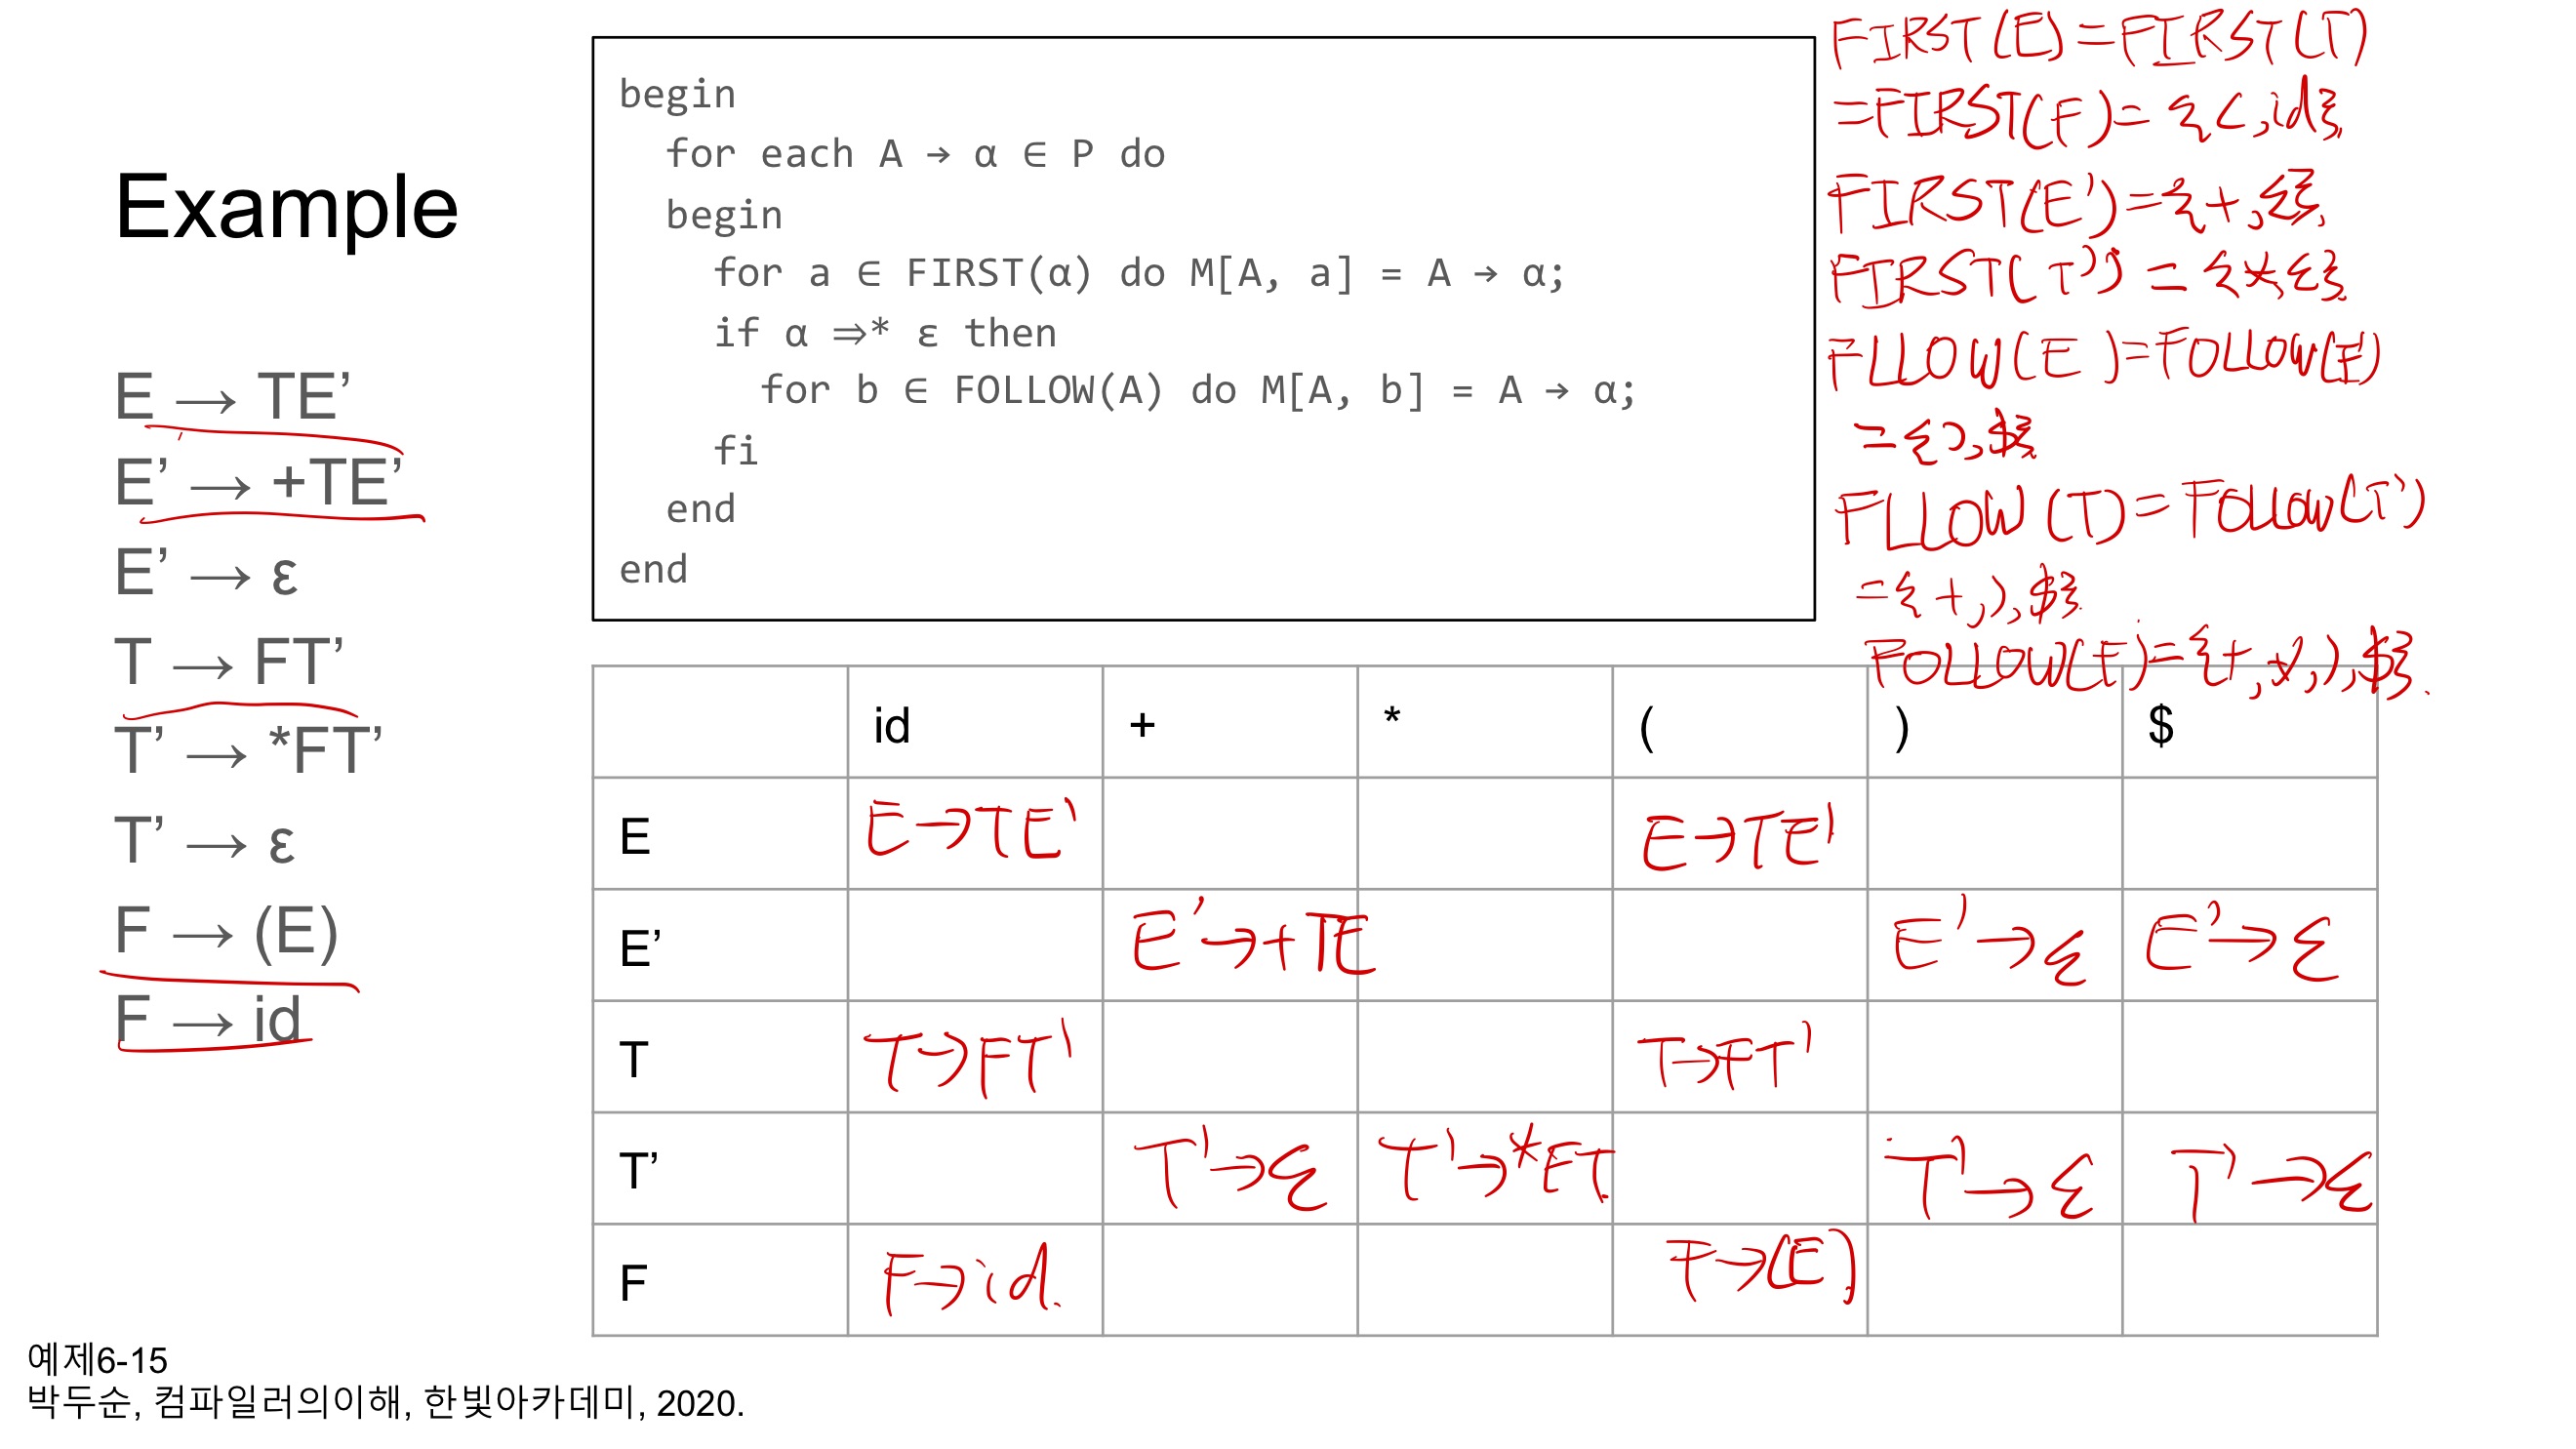 Example
E → TE’
E’ → +TE’
E’ → ε
T → FT’
T’ → *FT’
T’ → ε
F → (E)
F → id
begin
for each A → α ∈ P do
begin
for a ∈ FIRST(α) do M[A, a] = A → α;
if α ⇒* ε then
for b ∈ FOLLOW(A) do M[A, b] = A → α;
fi
end
end
FIRST(E)=FIRST(T)
=FIRST(F)={(,id}
FIRST(E')={+,ε}
FIRST(T')={*,ε}
FLLOW(E)=FOLLOW(E')
={),$}
FLLOW(T)=FOLLOW(T')
={+,),$}
FOLLOW(F)={+,*,),$}.
id + * ( ) $
E E→TE' E→TE'
E’ E'→+TE E'→ε E'→ε
T T→FT' T→FT'
T’ T'→ε T'→*FT T'→ε T'→ε
F F→id. F→(E)
예제6-15
박두순, 컴파일러의이해, 한빛아카데미, 2020.